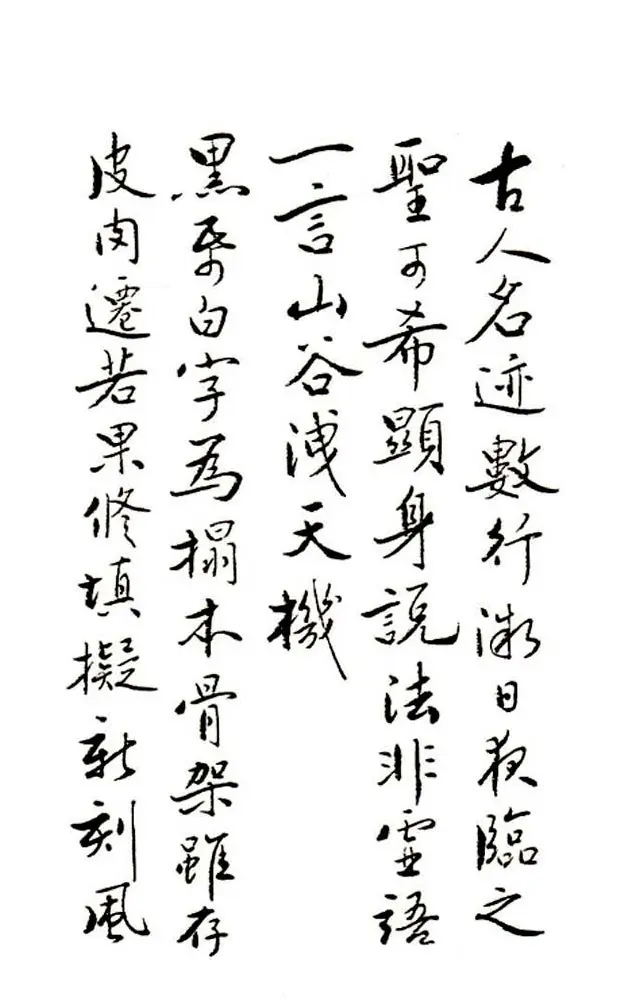 古人名迹數行微日夜臨之
聖可希顯身說法非虛語
一言山谷洩天機
黑帋白字為搨本骨架雖存
皮肉遷若果修填擬新刻風